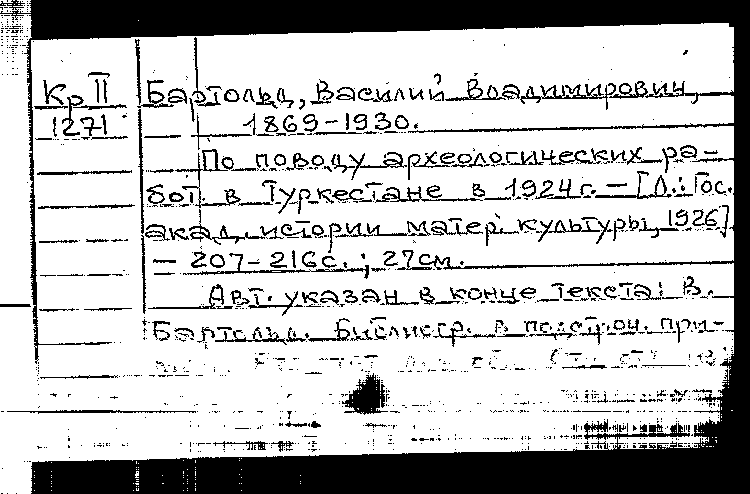 Кр II Бартольд, Василий Владимирович,
1271 1869-1930.
По поводу археологических ра-
бот в Туркестане в 1924г. — [Л.: Гос.
акад. истории матер. культуры, 1926].
— 207-216с.; 27см.
Авт. указан в конце текста: В.
Бартольд. Библиогр. в подстроч. при-